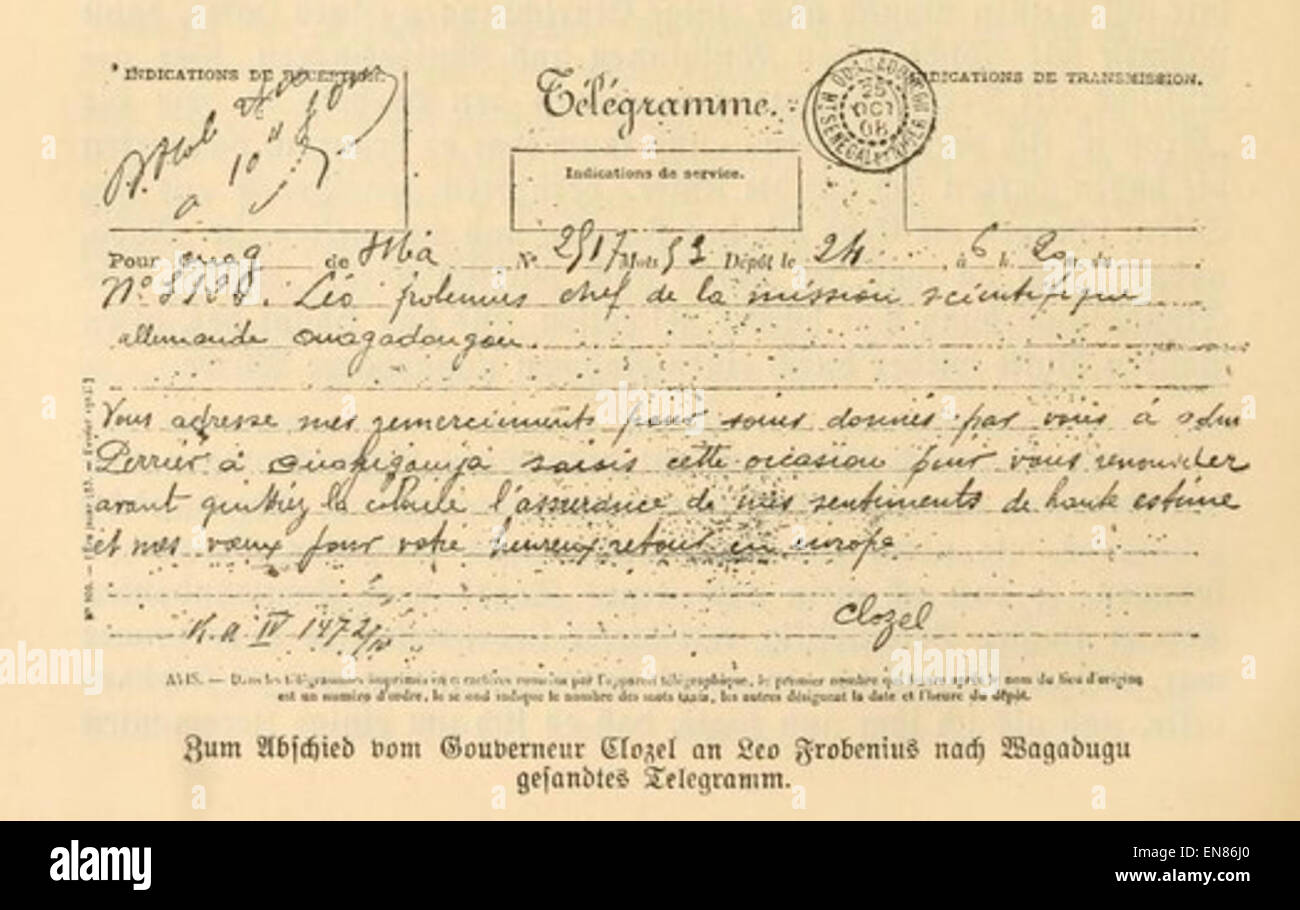 INDICATIONS DE RÉCEPTION.
Télégramme.
INDICATIONS DE TRANSMISSION.
OUAGADOUGOU
25
OCT
08
Ht SENEGAL ET NIGER
à 10
Indications de service.
Pour ouag de N° 2517 Mots 53 Dépôt le 24 à 6 h. 20 m. du
N° Léo frobenius chef de la mission scientifique
allemande ouagadougou.
Vous adresse mes remerciements pour soins donnés par vous à adm
Perrier à ouahigouya saisis cette occasion pour vous renouveler
avant quittiez la colonie l'assurance de mes sentiments de haute estime
et mes vœux pour votre heureux retour en europe
Clozel
K. A IV 1472/
AVIS. — Dans les télégrammes imprimés en caractères romains par l'appareil télégraphique, le premier nombre qui figure après le nom du lieu d'origine
est un numéro d'ordre, le second indique le nombre des mots taxés, les autres désignent la date et l'heure du dépôt.
Zum Abschied vom Gouverneur Clozel an Leo Frobenius nach Wagadugu
gesandtes Telegramm.
alamy
Image ID: EN86J0
www.alamy.com